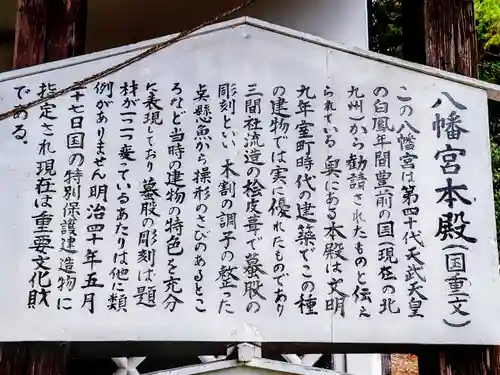 八幡宮本殿(国重文)
この八幡宮は第四十代天武天皇
の白鳳年間豊前の国(現在の北
九州)から勧請されたものと伝え
られている 奥にある本殿は文明
九年室町時代の建築でこの種
の建物では実に優れたものであり
三間社流造の桧皮葺で蟇股の
彫刻といい 木割の調子の整った
点懸魚から操形のさびのあるとこ
ろなど当時の建物の特色を充分
に表現しており 蟇股の彫刻は 題
材が一つ一つ変っているあたりは他に類
例がありません 明治四十年五月
二十七日国の特別保護建造物に
指定され現在は重要文化財
である。